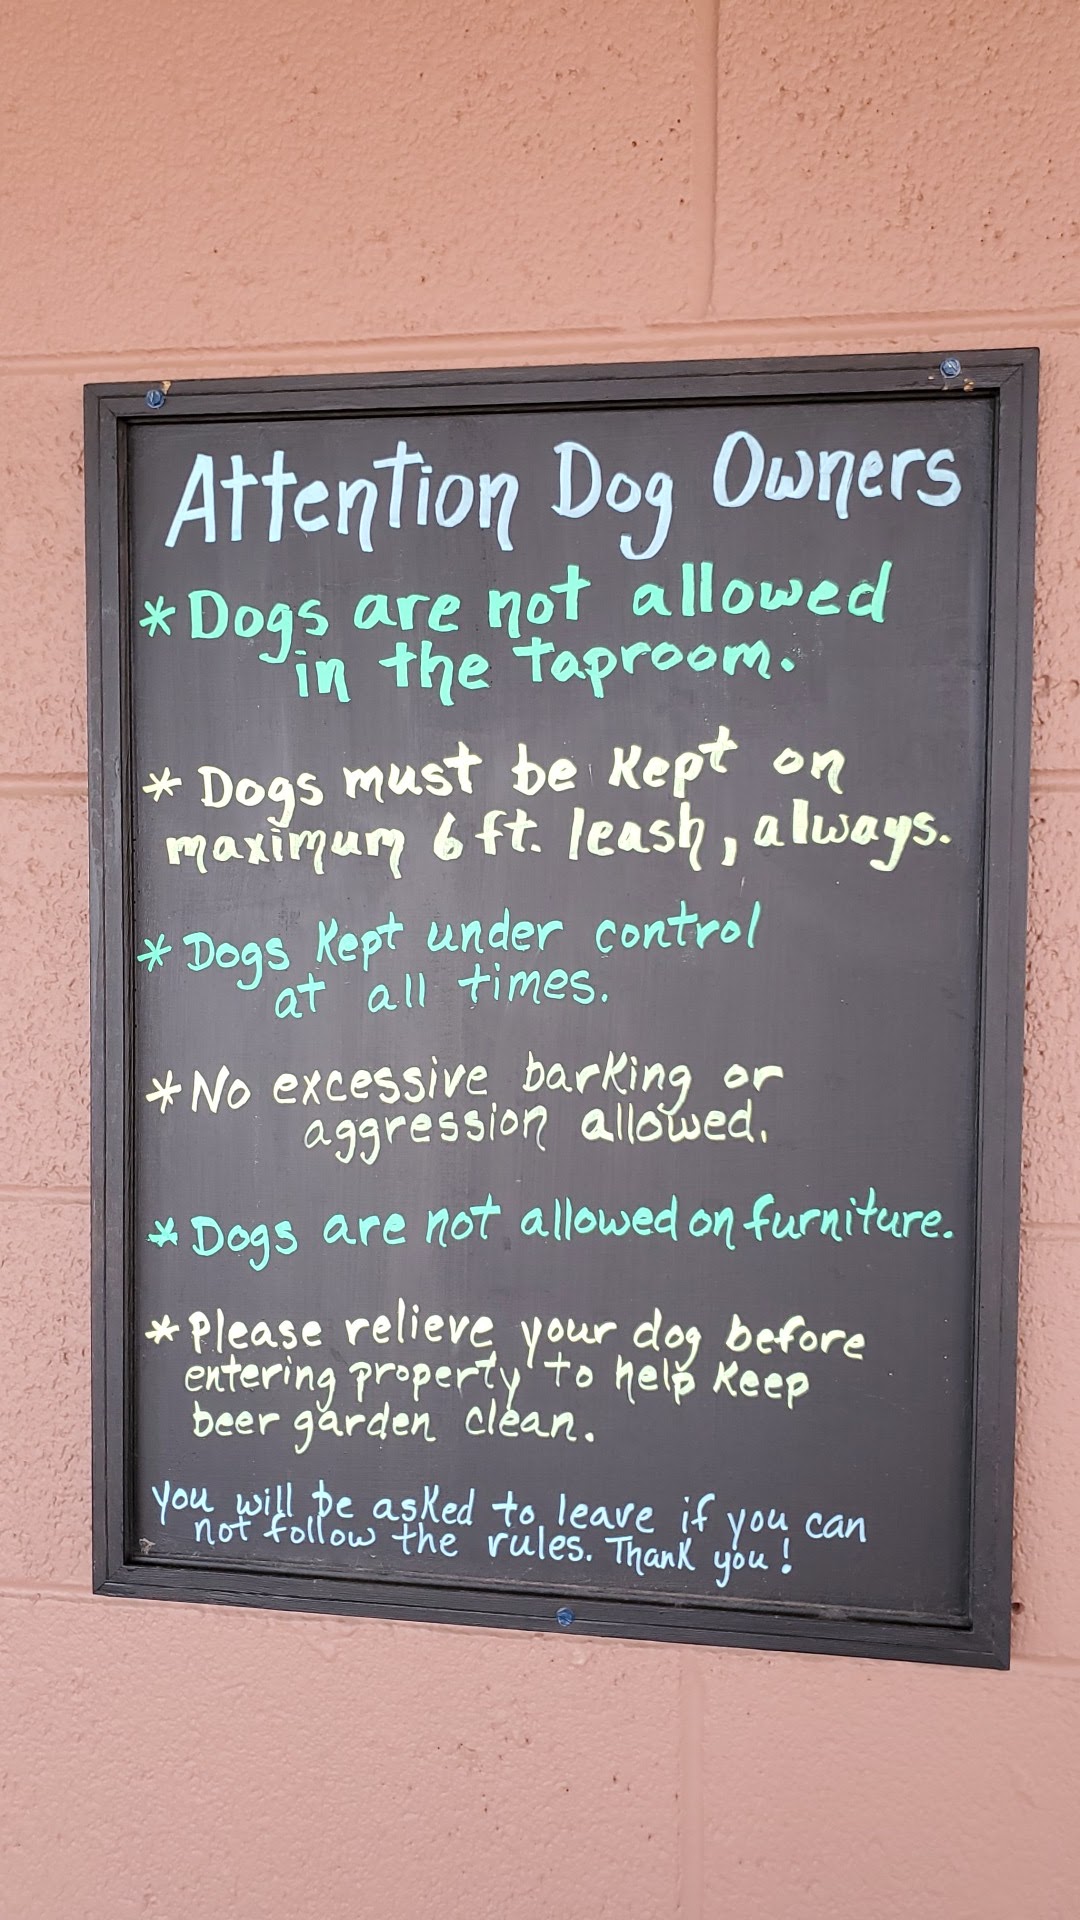 Attention Dog Owners
* Dogs are not allowed
in the taproom.
* Dogs must be kept on
maximum 6 ft. leash, always.
* Dogs kept under control
at all times.
* No excessive barking or
aggression allowed.
* Dogs are not allowed on furniture.
* Please relieve your dog before
entering property to help keep
beer garden clean.
you will be asked to leave if you can
not follow the rules. Thank you!